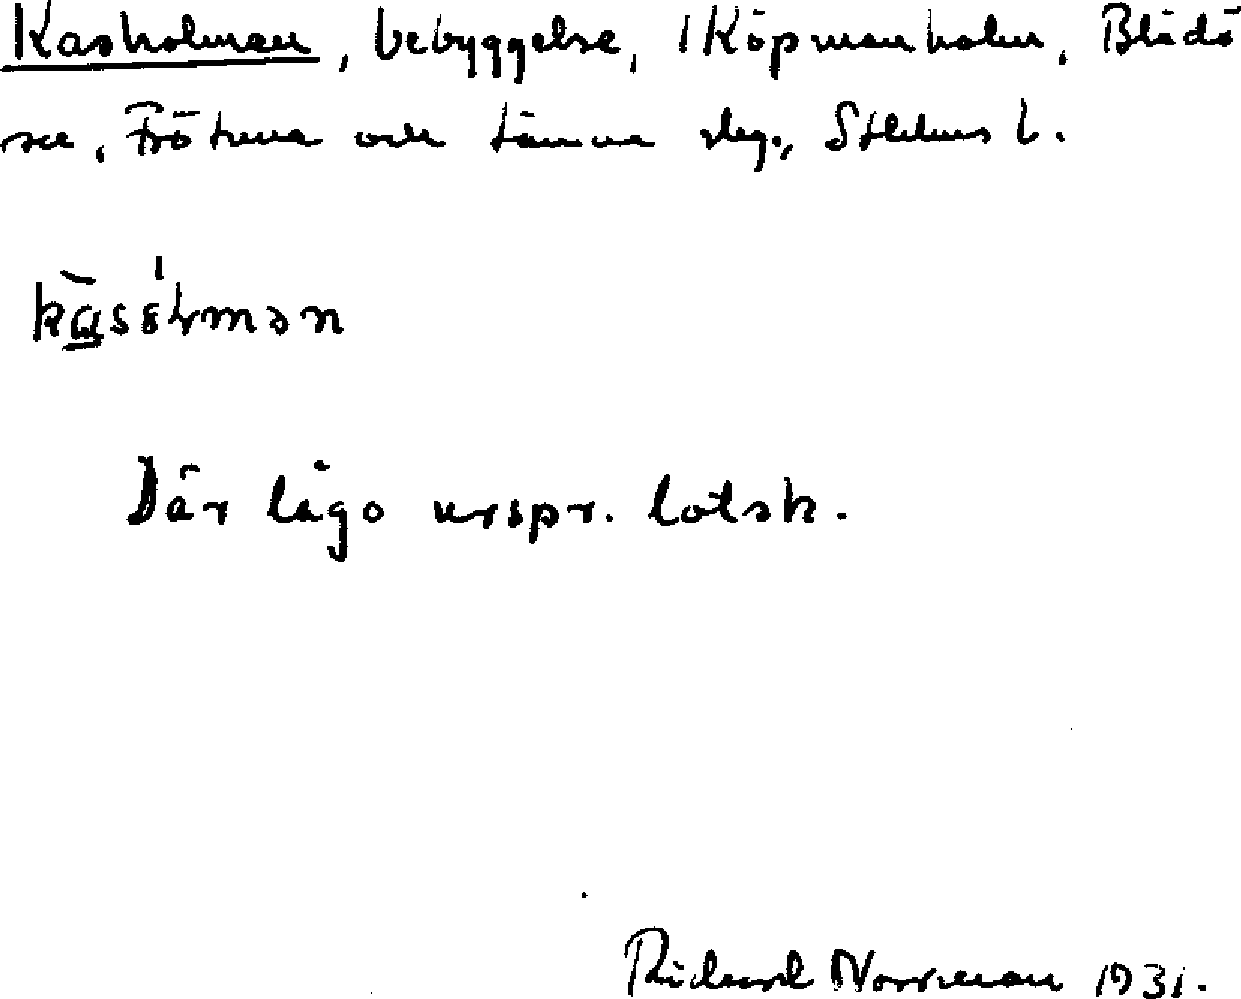 Kasholmen, bebyggelse, i Köpmanholm, Blidö
sn, Frötuna och Länna slg., Sthlms l.
Där lågo urspr. lotsk.
Rickard Norrman 1931.